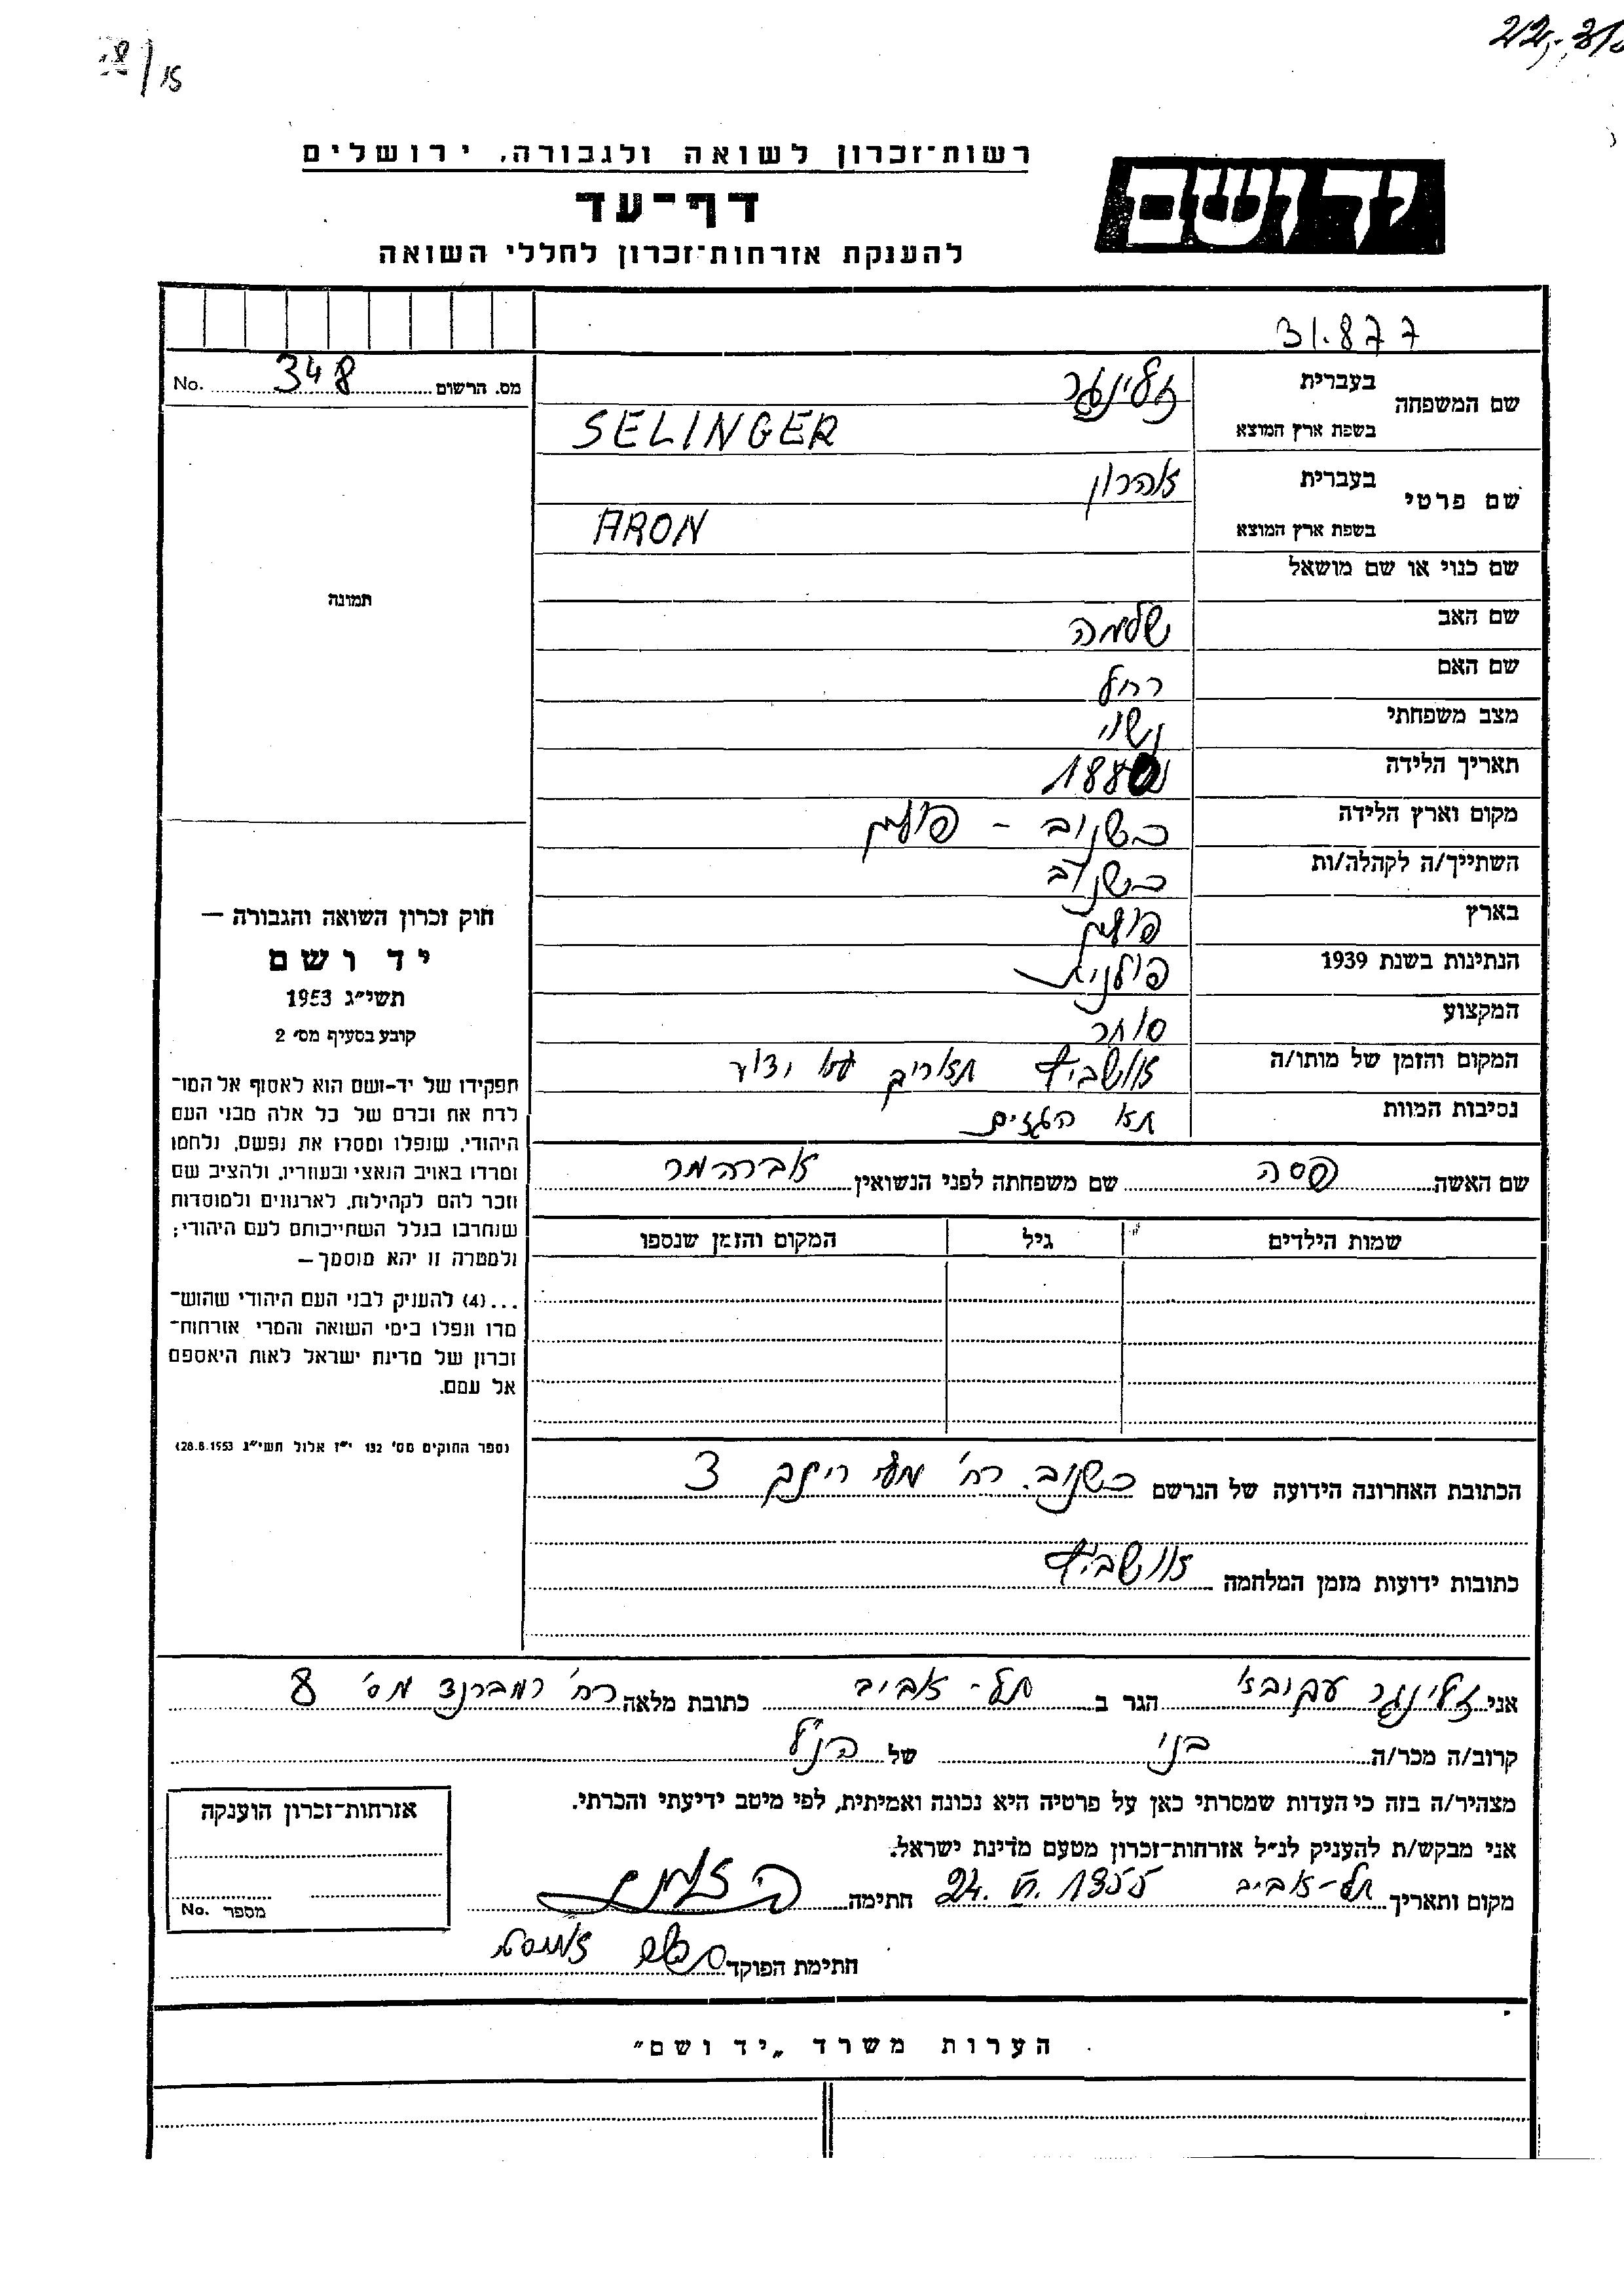 22.
/15
רשות־זכרון לשואה ולגבורה, ירושלים
דף־עד
להענקת אזרחות־זכרון לחללי השואה
יד ושם
31.877
מס. הרשום 348 No.
שם המשפחה
בעברית זלינגר
בשפת ארץ המוצא SELINGER
שם פרטי
בעברית אהרון
בשפת ארץ המוצא ARON
שם כנוי או שם מושאל
שם האב שלמה
שם האם רחל
מצב משפחתי נשוי
תאריך הלידה
מקום וארץ הלידה כשנוב - פולין
השתייך/ה לקהלה/ות כשנוב
בארץ פולין
הנתינות בשנת 1939 פולנית
המקצוע סוחר
המקום והזמן של מותו/ה אושביץ תאריך לא ידוע
נסיבות המוות תא הגזים
שם האשה פסה שם משפחתה לפני הנשואין אברהמר
שמות הילדים גיל המקום והזמן שנספו
הכתובת האחרונה הידועה של הנרשם כשנוב. רח' מלי רינק 3
כתובות ידועות מזמן המלחמה אושביץ
תמונה
חוק זכרון השואה והגבורה —
יד ושם
תשי״ג 1953
קובע בסעיף מס׳ 2
תפקידו של יד-ושם הוא לאסוף אל המו־
לדת את זכרם של כל אלה מבני העם
היהודי, שנפלו ומסרו את נפשם, נלחמו
ומרדו באויב הנאצי ובעוזריו, ולהציב שם
וזכר להם לקהילות, לארגונים ולמוסדות
שנחרבו בגלל השתייכותם לעם היהודי;
ולמטרה זו יהא מוסמך —
...(4) להעניק לבני העם היהודי שהוש־
מדו ונפלו בימי השואה והמרי אזרחות־
זכרון של מדינת ישראל לאות היאספם
אל עמם.
(ספר החוקים מס׳ 132 י״ז אלול תשי״ג 28.8.1953)
אני זלינגר עקיבא הגר ב תל-אביב כתובת מלאה רח' רמברנד מס' 8
קרוב/ה מכר/ה בני של הנ"ל
מצהיר/ה בזה כי העדות שמסרתי כאן על פרטיה היא נכונה ואמיתית, לפי מיטב ידיעתי והכרתי.
אני מבקש/ת להעניק לנ״ל אזרחות־זכרון מטעם מדינת ישראל.
מקום ותאריך תל-אביב 24. VI. 1955 חתימה
חתימת הפוקד
אזרחות־זכרון הוענקה
מספר No.
הערות משרד „יד ושם״